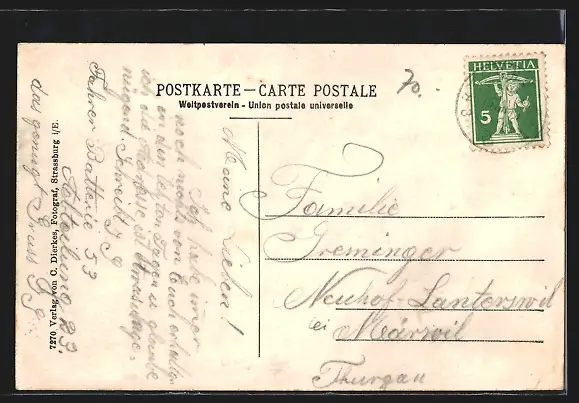 POSTKARTE — CARTE POSTALE
Weltpostverein - Union postale universelle
HELVETIA
5
70.
Familie
Greminger
Neuhof-Lanterswil
bei Märwil
Thurgau
Meine Lieben!
Ich habe immer
noch nichts von Euch erhalten
in den letzten Tagen u. glaube
ich die Adresse ist
nügend. Schreibt J. G.
Fahrer Batterie 53
Abteilung
das genügt Gruss
7270 Verlag von C. Dierkes, Fotograf, Strassburg i/E.